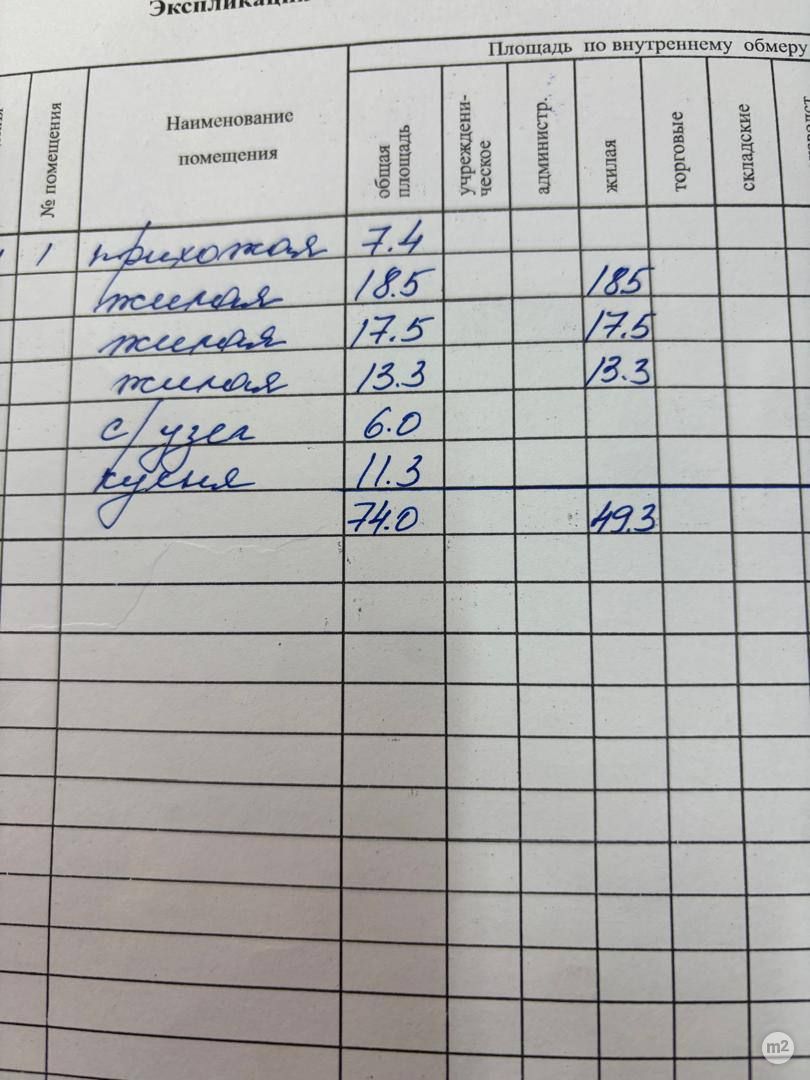 Экспликация
Площадь по внутреннему обмеру
№ помещения
Наименование помещения
общая площадь
учреждени-ческое
администр.
жилая
торговые
складские
1 прихожая 7.4
жилая 18.5 185
жилая 17.5 17.5
жилая 13.3 13.3
с/узел 6.0
кухня 11.3
74.0 49.3
m2